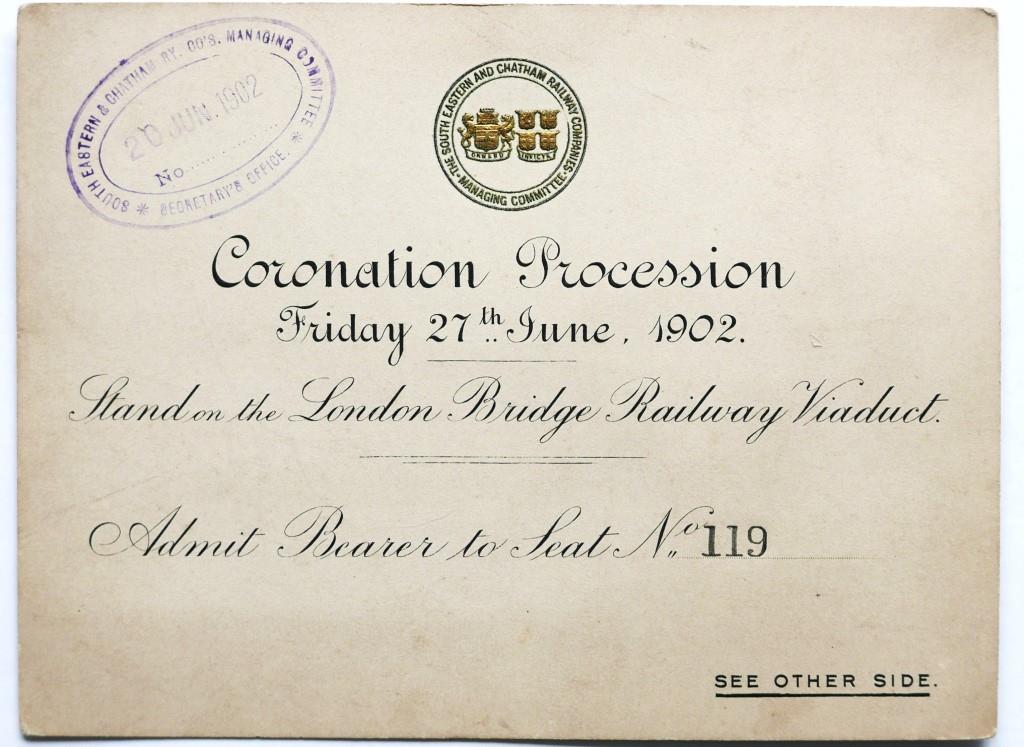 SOUTH EASTERN & CHATHAM RY. CO'S. MANAGING COMMITTEE
20 JUN. 1902
No
* SECRETARY'S OFFICE. *
THE SOUTH EASTERN AND CHATHAM RAILWAY COMPANIES
MANAGING COMMITTEE
ONWARD INVICTA
Coronation Procession
Friday 27th June, 1902.
Stand on the London Bridge Railway Viaduct.
Admit Bearer to Seat No 119
SEE OTHER SIDE.